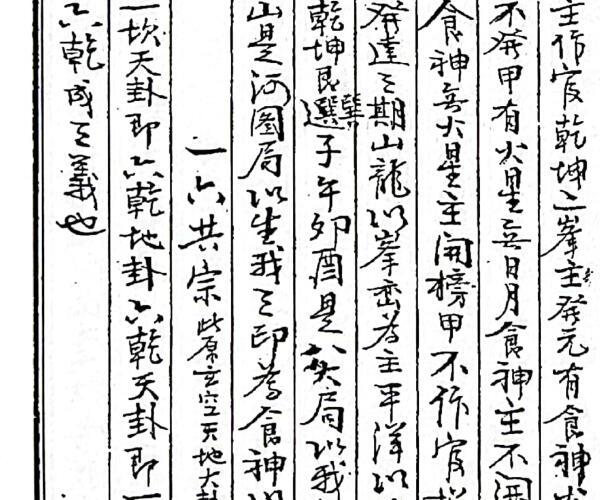 主作官乾坤二峯主癸元有食神
不發甲有火星無日月食神主不開
食神無火星主開榜甲不作官
發達之期山龍以峯巒為主平洋以
乾坤艮巽選子午卯酉是八大局以我
山是河圖局以生我之印為食神
一六共宗此原玄空天地大卦
一坎天卦即六乾地卦六乾天卦即一
六乾成之義也